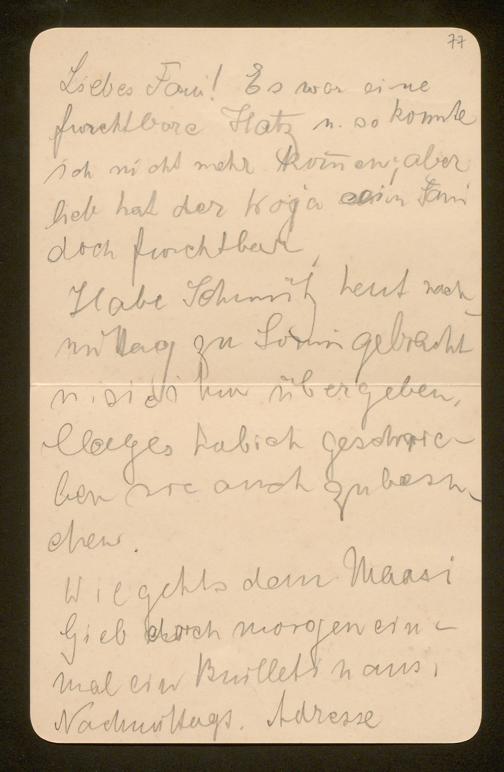 77
Liebes Fani! Es war eine
furchtbare Hatz u. so konnte
ich nicht mehr kom̄en, aber
lieb hat der Koja sein Fani
doch furchtbar,
Habe Schmitz heut nach-
mittag zu gebracht
u. sie ihm übergeben,
habich geschrie-
ben sie auch zu besu-
chen.
Wie gehts dem Maasi
Gieb doch morgen ein-
mal ein Bulletin aus,
Nachmittags. Adresse